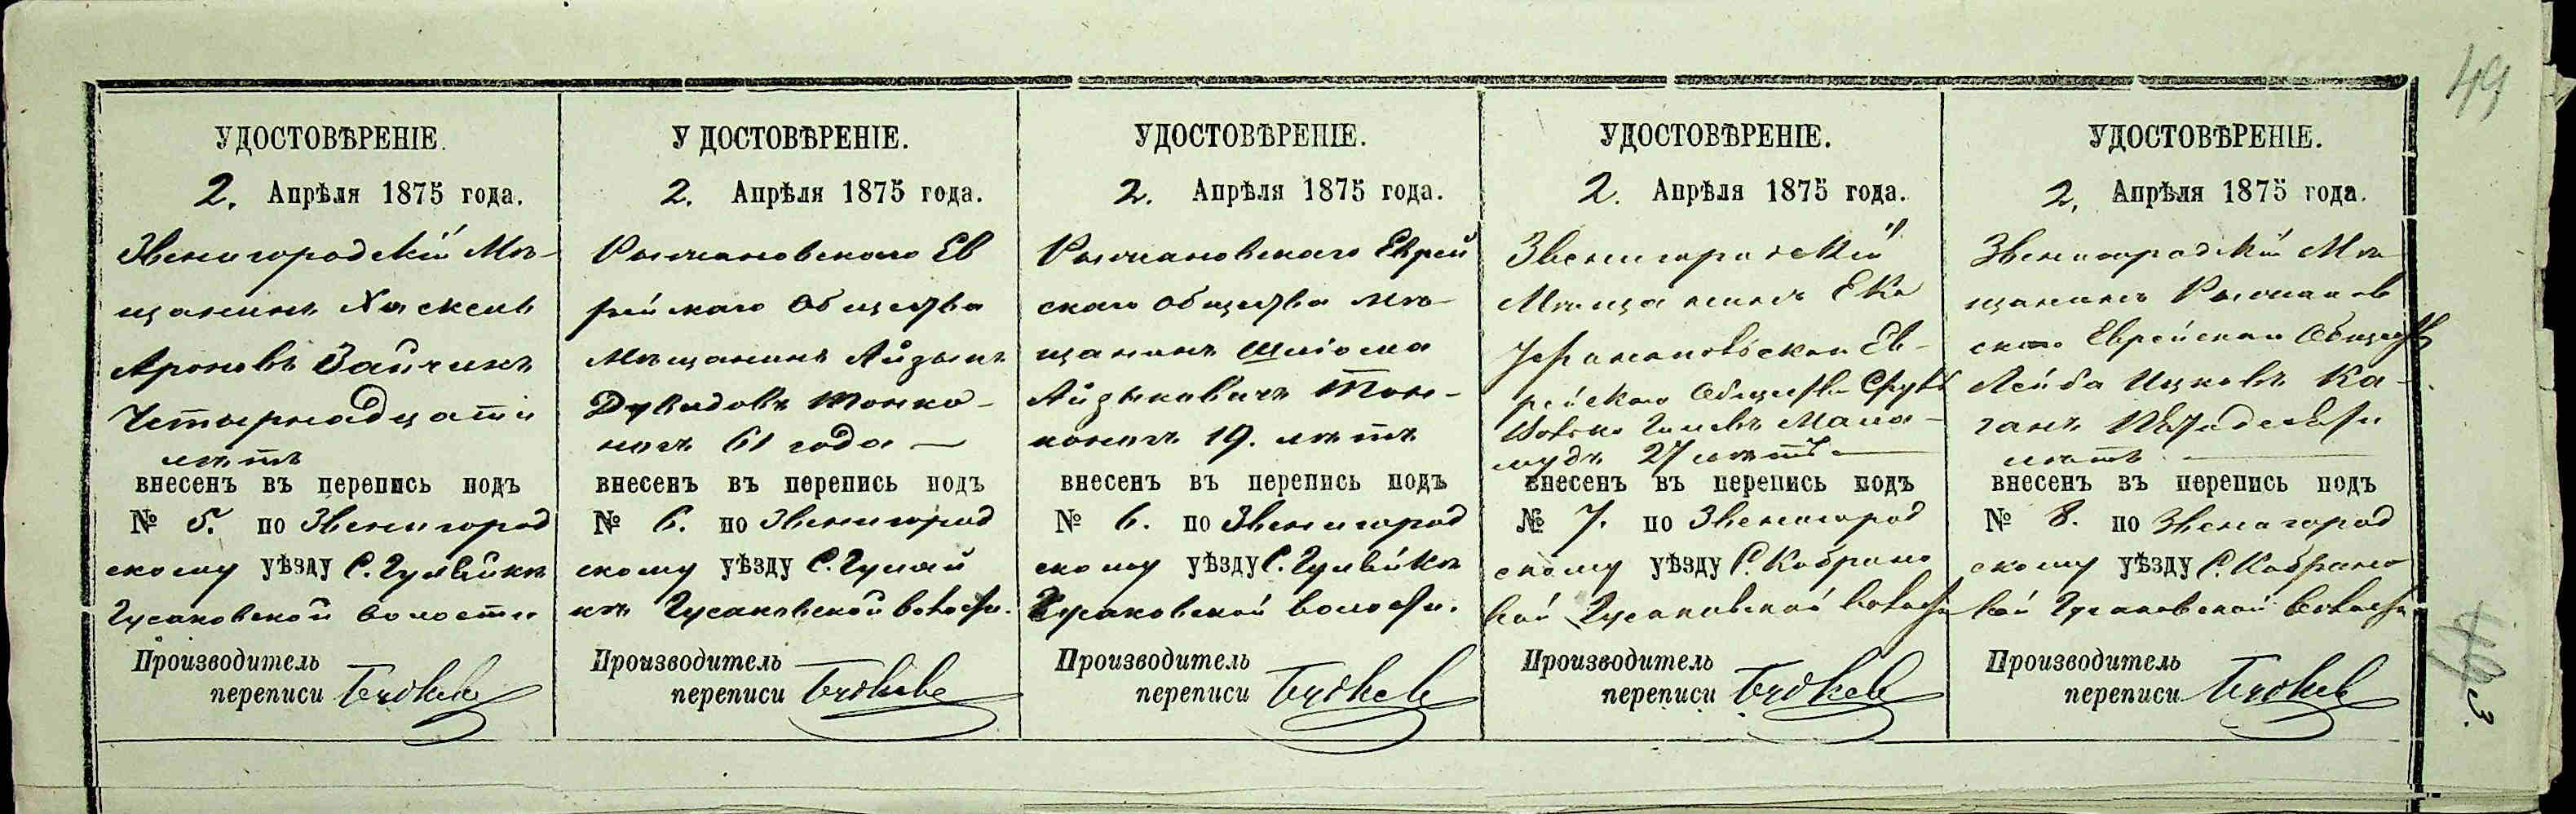 49
УДОСТОВѢРЕНІЕ.
2. Апрѣля 1875 года.
Звенигородскій Мѣ-
щанинъ Хаскель
Ароновъ Зайчикъ
Четырнадцати
лѣтъ
внесенъ въ перепись подъ
№ 5. по Звенигород
скому уѣзду С. Гуляйкѣ
Гусаковской волости
Производитель
переписи
УДОСТОВѢРЕНІЕ.
2. Апрѣля 1875 года.
Рыжановскаго Ев
рейскаго Общества
Мѣщанинъ Айзыкъ
Дувидовъ Тонко-
ногъ 61 года —
внесенъ въ перепись подъ
№ 6. по Звенигород
скому уѣзду С. Гуляй
кѣ Гусаковской волости.
Производитель
переписи
УДОСТОВѢРЕНІЕ.
2. Апрѣля 1875 года.
Рыжановскаго Еврей
скаго Общества мѣ-
щанинъ Шліома
Айзыковичъ Тон-
коногъ 19. лѣтъ
внесенъ въ перепись подъ
№ 6. по Звенигород
скому уѣзду С. Гуляйкѣ
Гусаковской волости.
Производитель
переписи
УДОСТОВѢРЕНІЕ.
2. Апрѣля 1875 года.
Звенигородскій
Мѣщанинъ Ека
Ев-
рейскаго Общества
27 лѣтъ —
внесенъ въ перепись подъ
№ 7. по Звенигород
скому уѣзду С. Кобрино
вой Гусаковской волости
Производитель
переписи
УДОСТОВѢРЕНІЕ.
2. Апрѣля 1875 года.
Звенигородскій Мѣ
щанинъ Рыжанов
скаго Еврейскаго Общества
Лейба Ицковъ Ка-
ганъ
лѣтъ —
внесенъ въ перепись подъ
№ 8. по Звенигород
скому уѣзду С. Кобрино
вой Гусаковской волости
Производитель
переписи